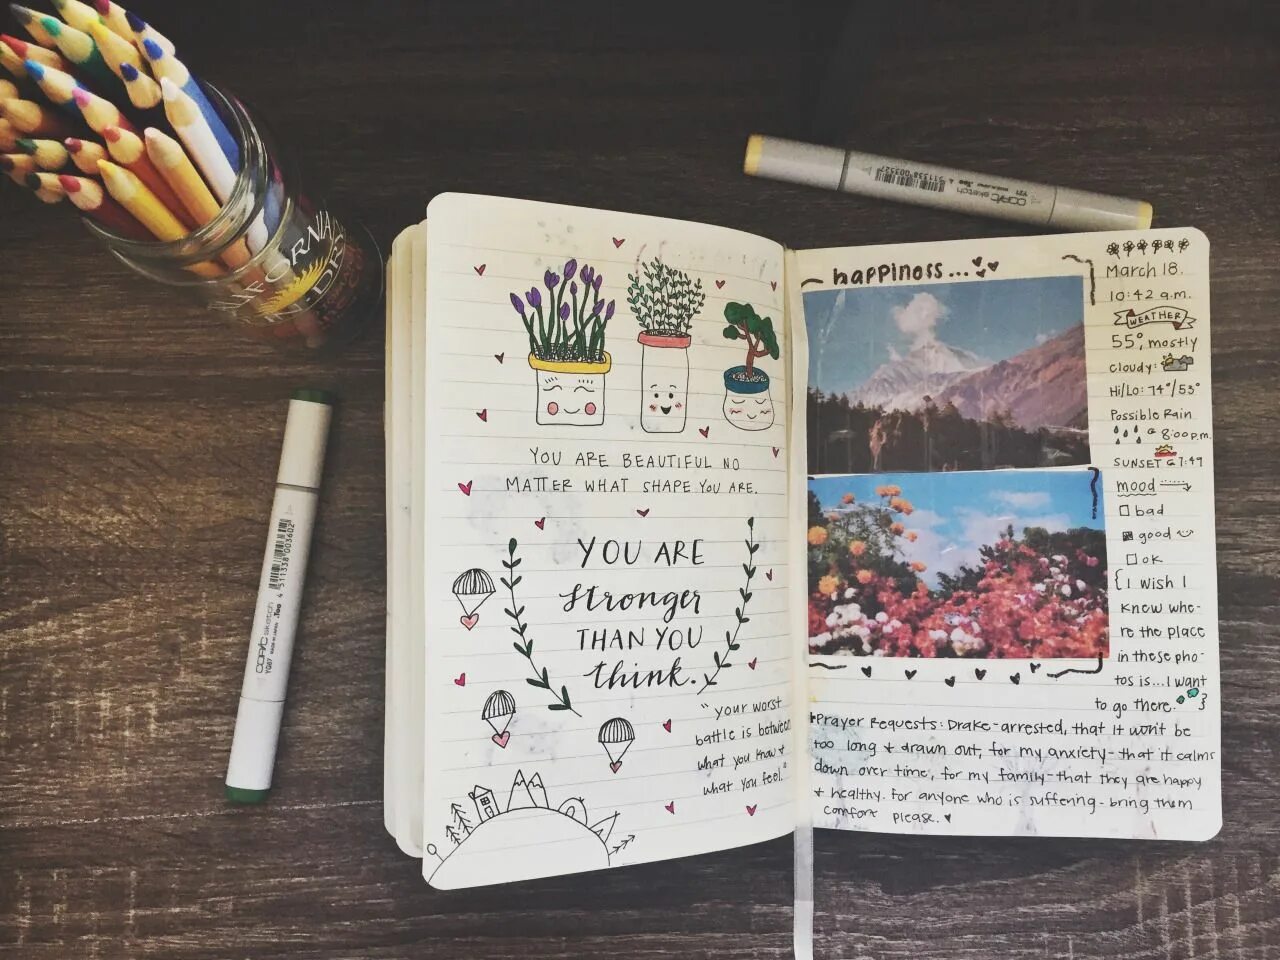 YOU ARE BEAUTIFUL NO
MATTER WHAT SHAPE YOU ARE.
YOU ARE
stronger
THAN YOU
think.
"your worst
battle is between
what you know &
what you feel."
happiness...
March 18.
10:42 a.m.
WEATHER
55°, mostly
cloudy:
Hi/Lo: 74°/53°
Possible Rain
@ 8:00 p.m.
SUNSET @ 7:49
mood
bad
good
OK
{I wish I
knew whe-
re the place
in these pho-
tos is... I want
to go there. }
Prayer Requests: Drake-arrested, that it won't be
too long & drawn out, for my anxiety- that it calms
down over time, for my family-that they are happy
& healthy. For anyone who is suffering- bring them
comfort please.
COPIC sketch
Y21
COPIC sketch .Too
YG67 MADE IN JAPAN
4 511338 003602